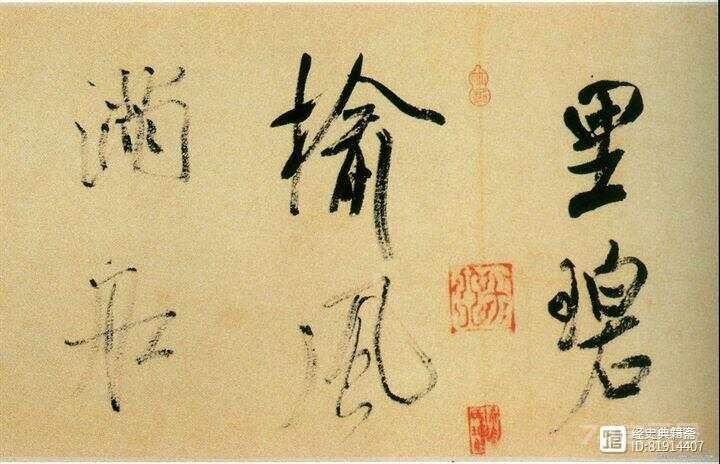 里碧
榆風
滿舡
经史典籍斋
ID:81914407